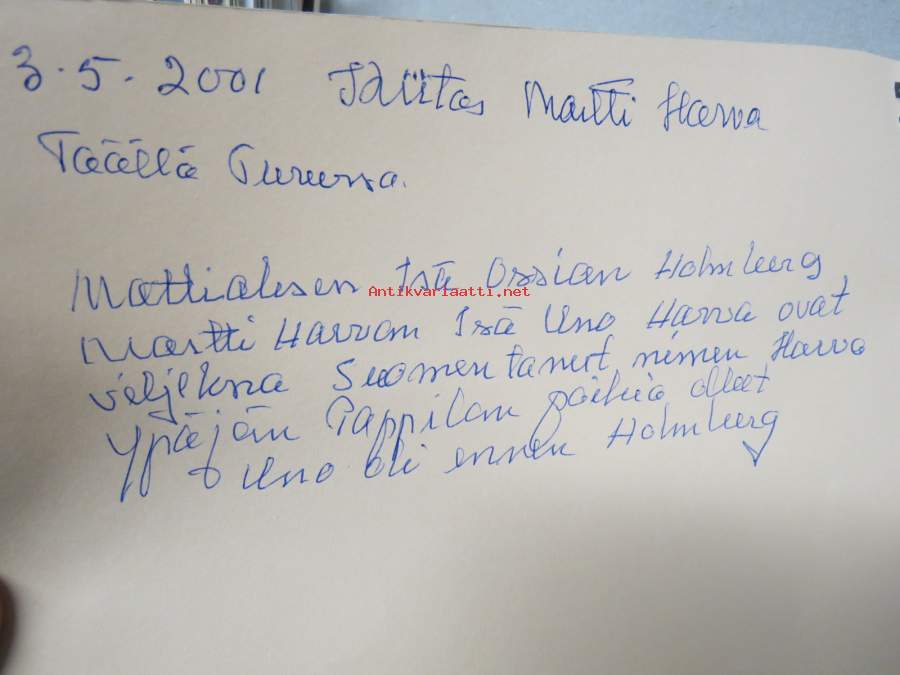 3.5.2001 Martti Harva
Täällä Turussa.
Isä Ossian Holmberg
Antikvariaatti.net
Martti Harvan Isä Uno Harva ovat
veljeksiä Suomentanut nimen Harva
Ypäjän Pappilan poikia olleet
Uno oli ennen Holmberg